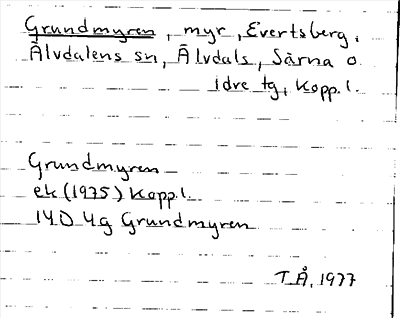 Grundmyren, myr, Evertsberg,
Älvdalens sn, Älvdals, Särna o
idre tg, Kopp. l.
Grundmyren
ek (1975) Kopp. l.
14D 4g Grundmyren
T Å, 1977